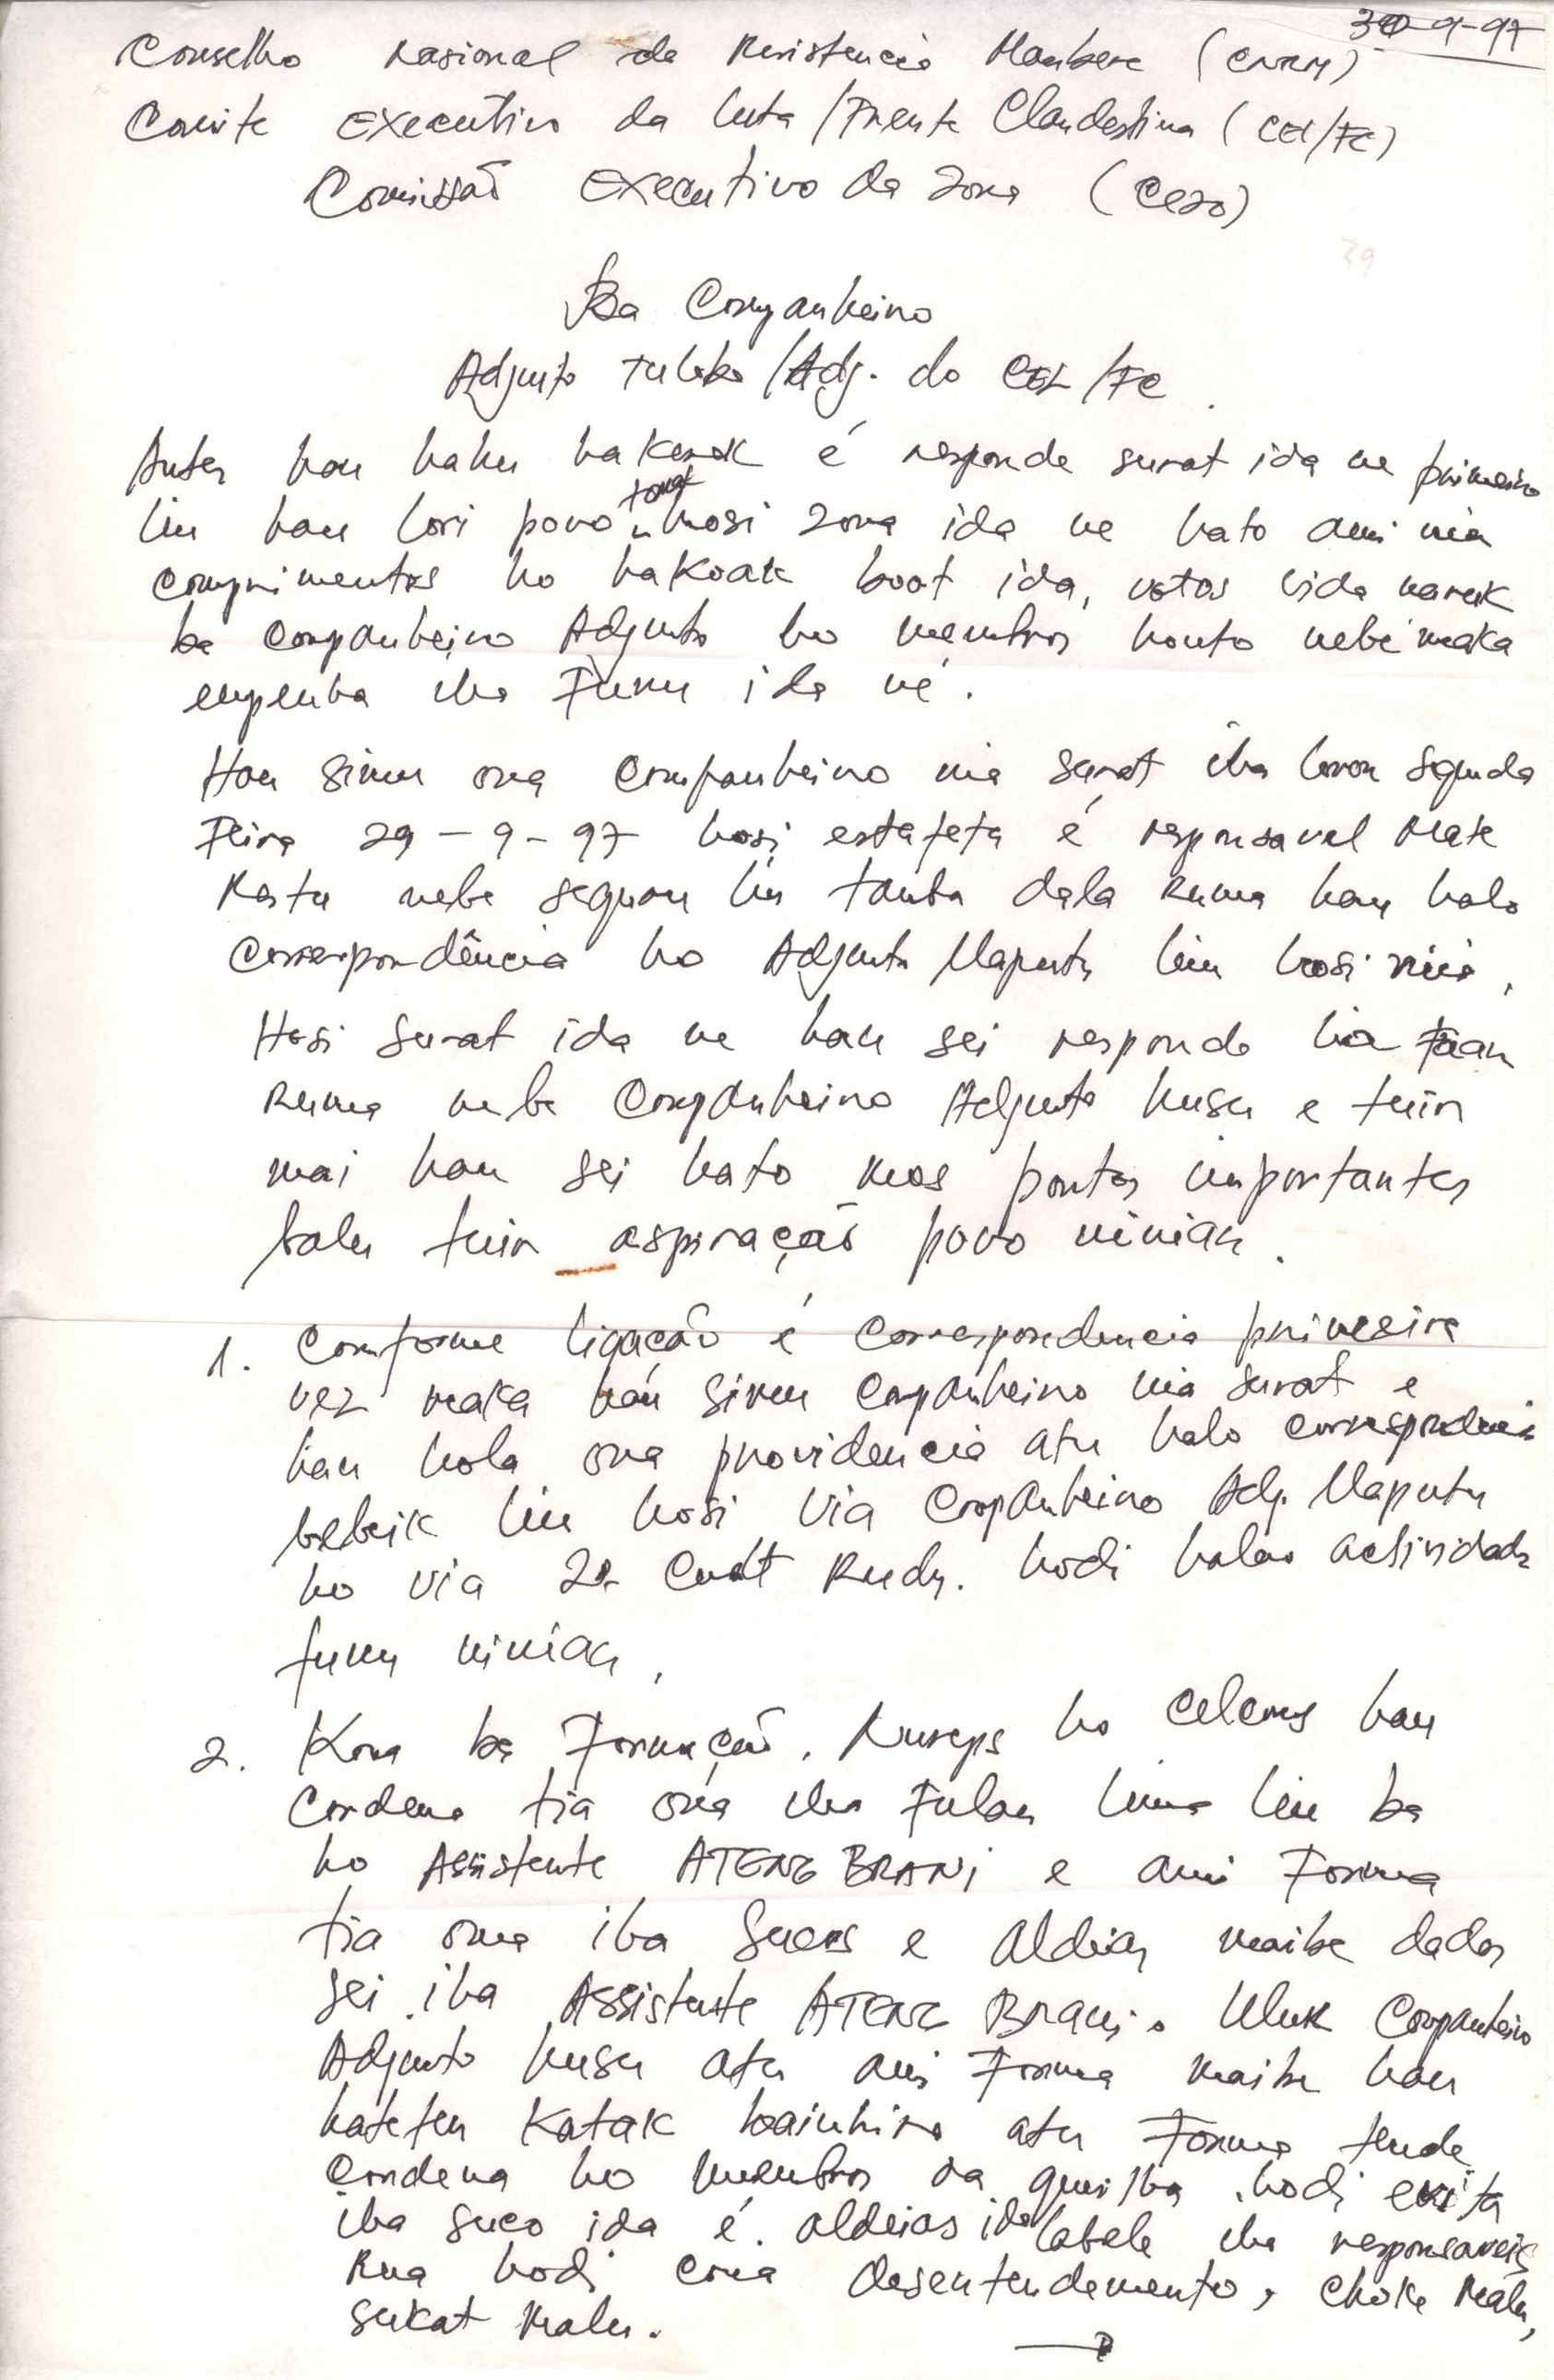 30-9-97
Conselho Nasional da Resistencia Maubere (CNRM)
Comite Executivo da luta / Frente Clandestina (CEL/FC)
Comissaõ Executivo da Zona (Cezo)
39
Ba Companheiro
Adjunto / Adj. do CEL/FC.
Antes hau hahu hakerek é responde surat ida ne primeiro
liu hau lori povo tomak hosi zona ida ne hato ami nia
comprimentos ho hakoak boot ida, votos vida naruk
ba Companheiro Adjunto ho membros hotu nebé maka
empenha iha Funu ida né.
Hau simu ona Companheiro nia surat iha loron Segunda
Feira 29-9-97 hosi estafeta é responsavel Mate
Restu nebe seguru liu tanba dala ruma hau halo
Correspondência ho Adjunto Maputu liu hosi nia,
Hosi surat ida ne hau sei responde lia Fuan
ruma nebe Companheiro Adjunto husu e tuir
mai hau sei hato mos pontos importantes
balu tuir aspiraçaõ povo ninian.
1. Conforme ligação é Correspondencia primeira
vez maka hau simu Companheiro nia surat e
hau hola ona providencia atu halo Correspondencia
bebeik liu hosi via Companheiro Adj. Maputu
ho via 2º Cmdt Rudy. hodi halao actividade
funu ninian,
2. Kona ba Formaçaõ. Nureps ho Celcoms hau
Cordena tia ona iha Fulan lima liu ba
ho Assistente ATENG BRANI e ami Forma
tia ona iha Sucos e aldeias maibe dados
sei iha Assistente ATENG Brani. Uluk Companheiro
Adjunto husu atu ami Forma maibe hau
hateten katak bainhira atu Forma tende
Cordena ho membros da guerilha, hodi evita
iha suco ida é. aldeias ida labele iha responsaveis
Rua hodi cria desentendemento, choke malu,
sukat malu.